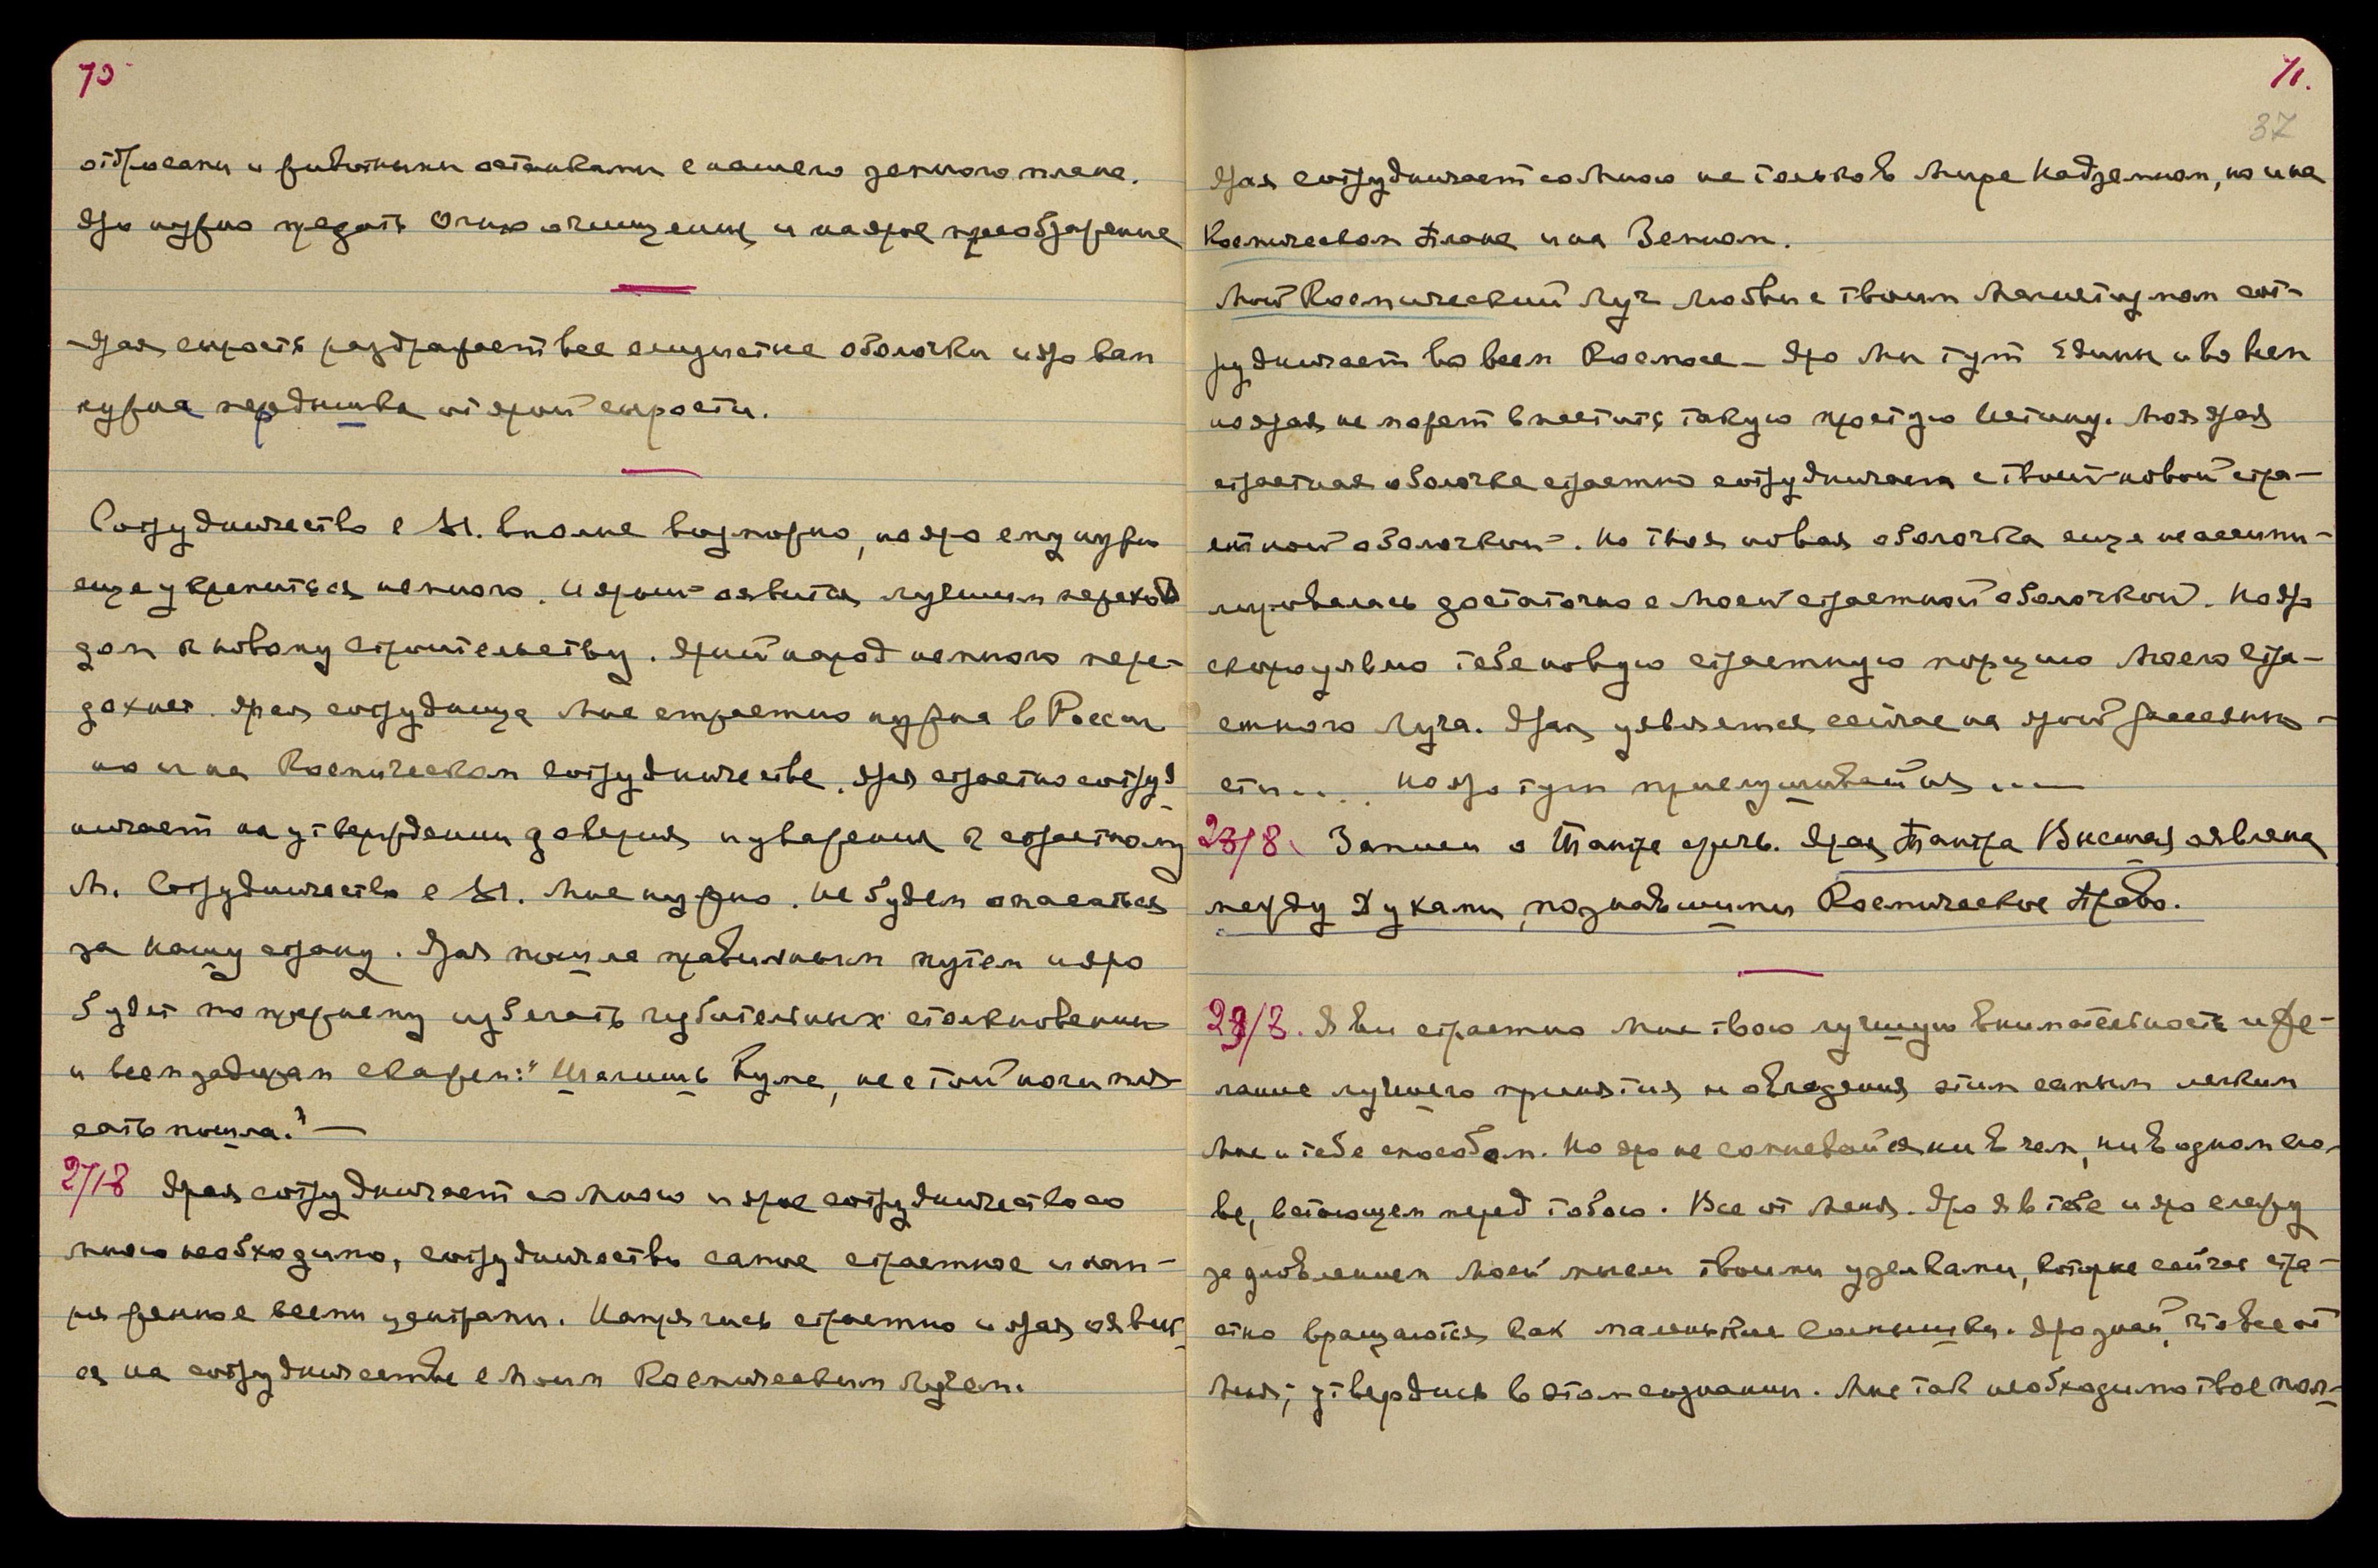 70
отбросами и животными останками с нашего земного плана.
Яро нужно предать Огню очищения и на ярое преображение
Ярая сырость раздражает все слизистые оболочки и яро вам
нужна передышка от ярой сырости.
Сотрудничество с вполне возможно, но яро ему нужно
еще укрепиться немного. И ярый явится лучшим переходом
к новому строительству. Ярый народ немного пере-
дохнет. Ярая сотрудница Мне страстно нужна в России
но и на Космическом сотрудничестве. Ярая страстно сотруд-
ничает на утверждении доверия и уважения к страстному
М. Сотрудничество с Мне нужно. Не будем опасаться
за нашу страну. Ярая пошла правильным путем и яро
будет по прежнему избегать губительных столкновений
и всем задирам скажем: "Шалишь Кума, не с той ноги пля-
сать пошла." —
27/8 Ярая сотрудничает со Мною и ярое сотрудничество со
мною необходимо, сотрудничество самое страстное и нап-
ряженное всеми центрами. Напрягись страстно и ярая явись
ся на сотрудничестве с Моим Космическим Лучем.
71.
37
Ярая сотрудничает со Мною не только в Мире Надземном, но и на
Космическом Плане и на Земном.
Мой Космический Луч Любви с твоим Магнитизмом сот-
рудничает во всем Космосе — Яро Мы тут Едины и во всем
но ярая не может вместить такую простую Истину. Моя ярая
страстная оболочка страстно сотрудничает с твоей новой стра-
стной оболочкой. Но твоя новая оболочка еще не ассими-
лировалась достаточно с Моей страстной оболочкой. Но яро
скоро уявлю тебе новую страстную порцию Моего стра-
стного Луча. Ярая уявляется сейчас на ярой рассеянно-
сти.... Но яро тут прислушивайся ....
28/8. Запиши о Тантре ярая Тантра Высшая явлена
между Духами, познавшими Космическое Право.
29/8. Яви страстно Мне твою лучшую внимательность и же-
лание лучшего принятия и овладения этим самым легким
Мне и тебе способом. Но яро не сомневайся ни в чем, ни в одном сло-
ве, встающем перед тобою. Все от Меня. Яро Я в тебе и яро слежу
за уловлением Моей мысли твоими узелками, которые сейчас стра-
стно вращаются как маленькие солнышки. Яро знай, что все от
Меня, утвердись в этом сознании. Мне так необходимо твое пол-